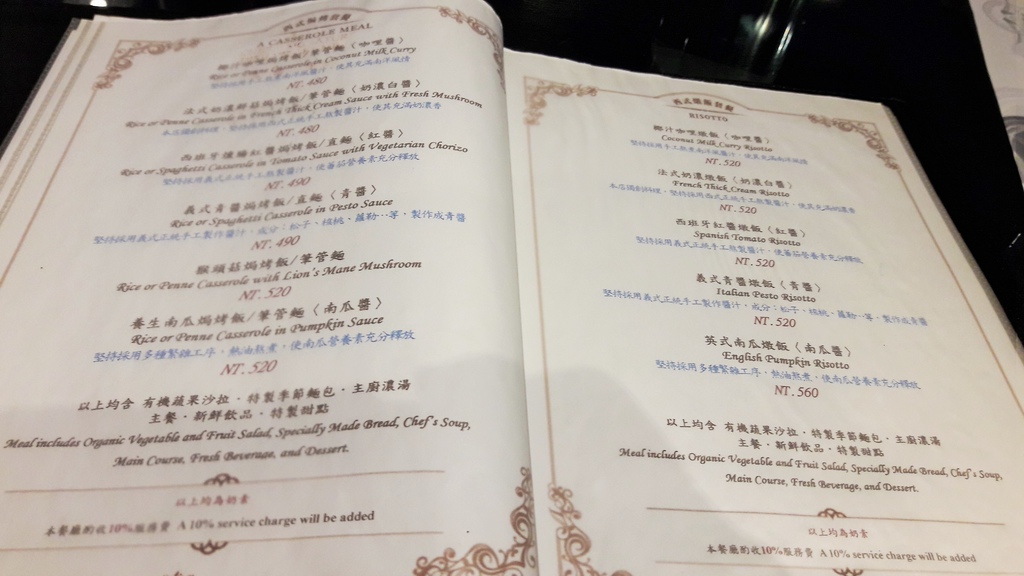 A CASSEROLE MEAL
椰汁咖哩焗烤飯/筆管麵〈咖哩醬〉
Rice or Penne Casserole in Coconut Milk Curry
NT. 480
法式奶濃鮮菇焗烤飯/筆管麵〈奶濃白醬〉
Rice or Penne Casserole in French Thick Cream Sauce with Fresh Mushroom
NT. 480
西班牙燻腸紅醬焗烤飯/直麵〈紅醬〉
Rice or Spaghetti Casserole in Tomato Sauce with Vegetarian Chorizo
堅持採用義式正統手工熬製醬汁，使蕃茄營養素充分釋放
NT. 490
義式青醬焗烤飯/直麵〈青醬〉
Rice or Spaghetti Casserole in Pesto Sauce
堅持採用義式正統手工製作醬汁，成分：松子、核桃、蘿勒…等，製作成青醬
NT. 490
猴頭菇焗烤飯/筆管麵
Rice or Penne Casserole with Lion's Mane Mushroom
NT. 520
養生南瓜焗烤飯/筆管麵〈南瓜醬〉
Rice or Penne Casserole in Pumpkin Sauce
堅持採用多種繁雜工序，熱油熬煮，使南瓜營養素充分釋放
NT. 520
以上均含 有機蔬果沙拉．特製季節麵包．主廚濃湯
主餐．新鮮飲品．特製甜點
Meal includes Organic Vegetable and Fruit Salad, Specially Made Bread, Chef's Soup,
Main Course, Fresh Beverage, and Dessert.
以上均為奶素
本餐廳酌收10%服務費 A 10% service charge will be added
RISOTTO
椰汁咖哩燉飯〈咖哩醬〉
Coconut Milk Curry Risotto
NT.520
法式奶濃燉飯〈奶濃白醬〉
French Thick Cream Risotto
NT.520
西班牙紅醬燉飯〈紅醬〉
Spanish Tomato Risotto
堅持採用義式正統手工熬製醬汁，使蕃茄營養素充分釋放
NT.520
義式青醬燉飯〈青醬〉
Italian Pesto Risotto
堅持採用義式正統手工製作醬汁，成分：松子、核桃、蘿勒…等，製作成青醬
NT.520
英式南瓜燉飯〈南瓜醬〉
English Pumpkin Risotto
堅持採用多種繁雜工序，熱油熬煮，使南瓜營養素充分釋放
NT.560
以上均含 有機蔬果沙拉．特製季節麵包．主廚濃湯
主餐．新鮮飲品．特製甜點
Meal includes Organic Vegetable and Fruit Salad, Specially Made Bread, Chef's Soup,
Main Course, Fresh Beverage, and Dessert.
以上均為奶素
本餐廳酌收10%服務費 A 10% service charge will be added